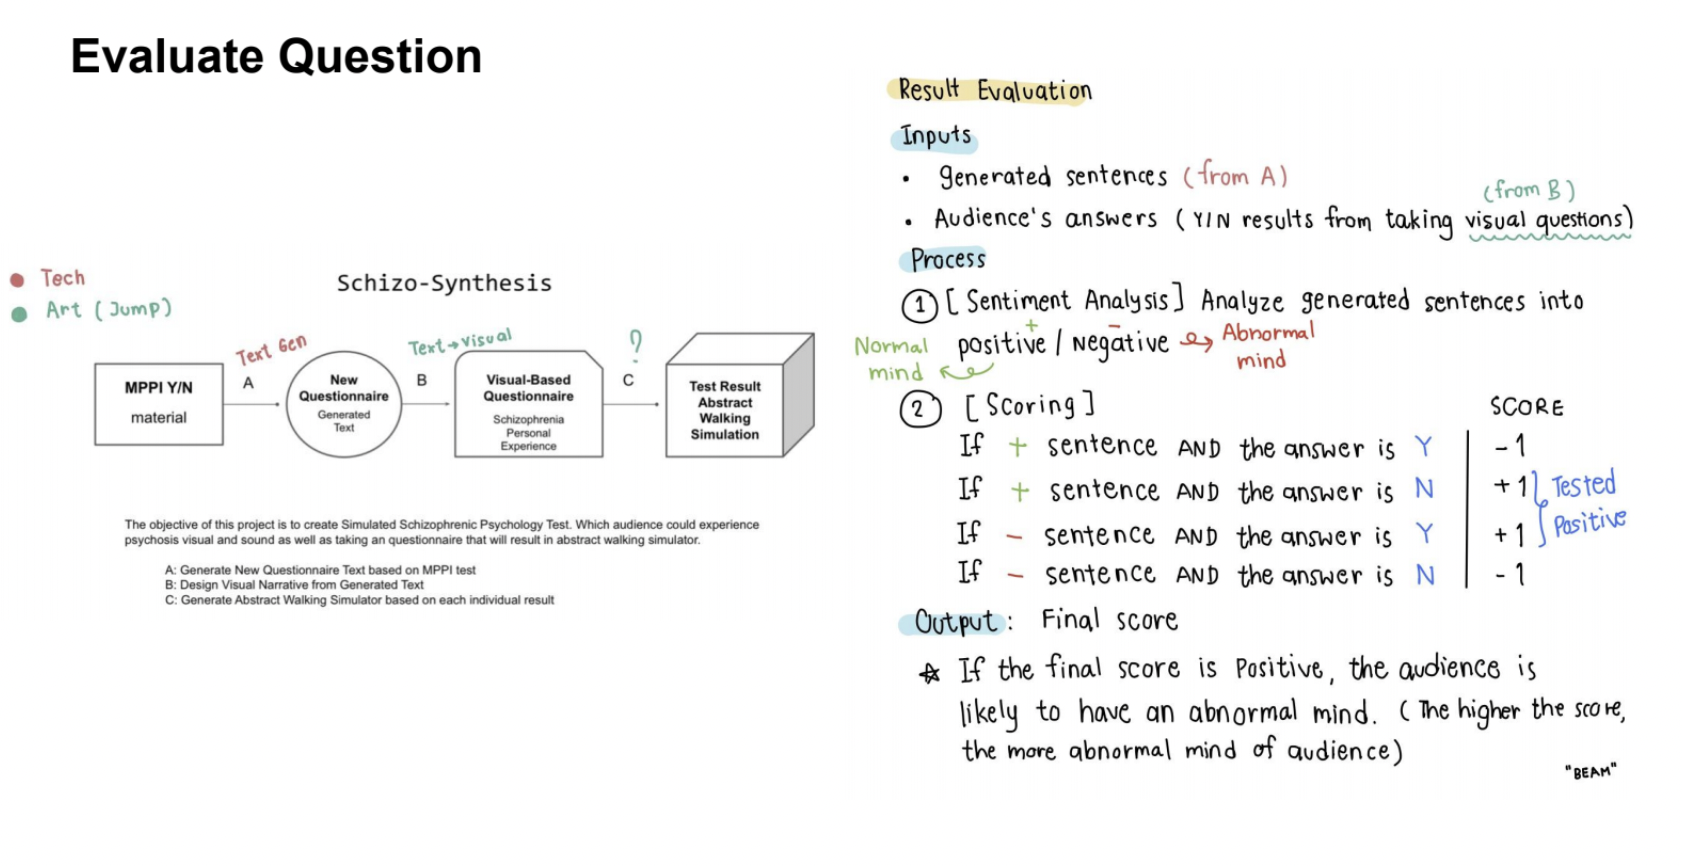 Evaluate Question
Tech
Art (Jump)
Schizo-Synthesis
Text Gen
Text→Visual
?
MPPI Y/N
material
A
New
Questionnaire
Generated
Text
B
Visual-Based
Questionnaire
Schizophrenia
Personal
Experience
C
Test Result
Abstract
Walking
Simulation
The objective of this project is to create Simulated Schizophrenic Psychology Test. Which audience could experience
psychosis visual and sound as well as taking an questionnaire that will result in abstract walking simulator.
A: Generate New Questionnaire Text based on MPPI test
B: Design Visual Narrative from Generated Text
C: Generate Abstract Walking Simulator based on each individual result
Result Evaluation
Inputs
• generated sentences (from A)
(from B)
• Audience's answers (Y/N results from taking visual questions)
Process
① [Sentiment Analysis] Analyze generated sentences into
+ −
Normal positive / negative Abnormal
mind mind
② [Scoring] SCORE
If + sentence AND the answer is Y -1
If + sentence AND the answer is N +1 Tested
If − sentence AND the answer is Y +1 Positive
If − sentence AND the answer is N -1
Output: Final score
☆ If the final score is Positive, the audience is
likely to have an abnormal mind. (The higher the score,
the more abnormal mind of audience)
"BEAM"